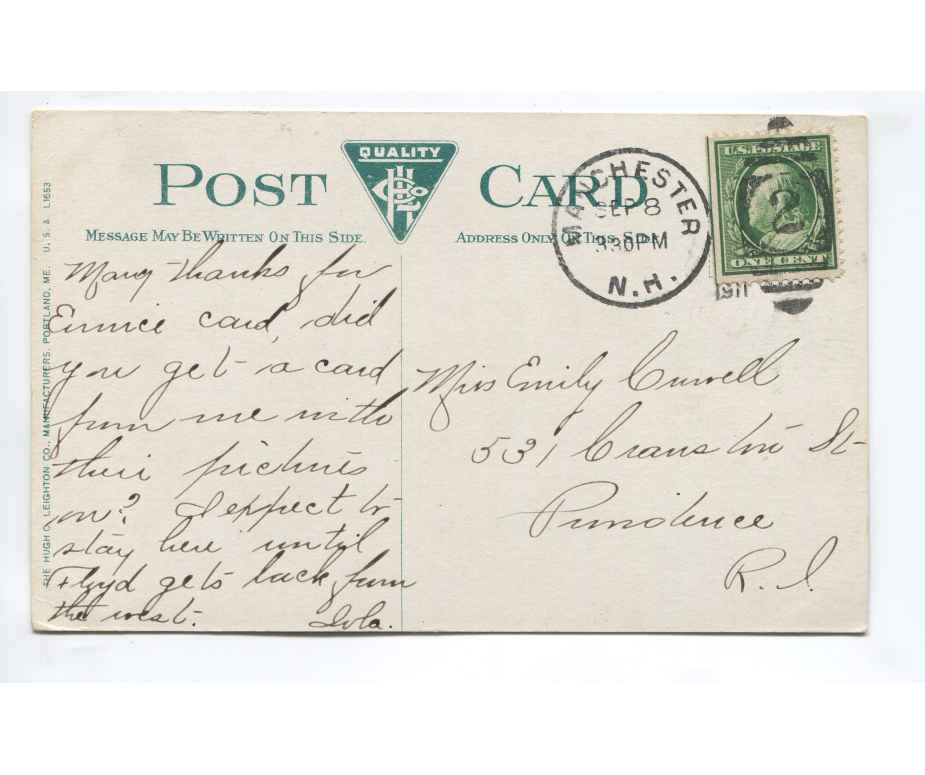 POST CARD
QUALITY
HL Co
MESSAGE MAY BE WRITTEN ON THIS SIDE.
ADDRESS ONLY ON THIS SIDE
MANCHESTER
SEP 8
3 30 PM
N.H.
1911
U.S. POSTAGE
2
ONE CENT
THE HUGH C. LEIGHTON CO., MANUFACTURERS, PORTLAND, ME. U. S. A. L1653
Many thanks for
Eunice card, did
you get a card
from me with
their pictures
on? I expect to
stay here until
Floyd gets back from
the west.
Iola.
Miss Emily Curvell
531 Cranston St
Providence
R.I.